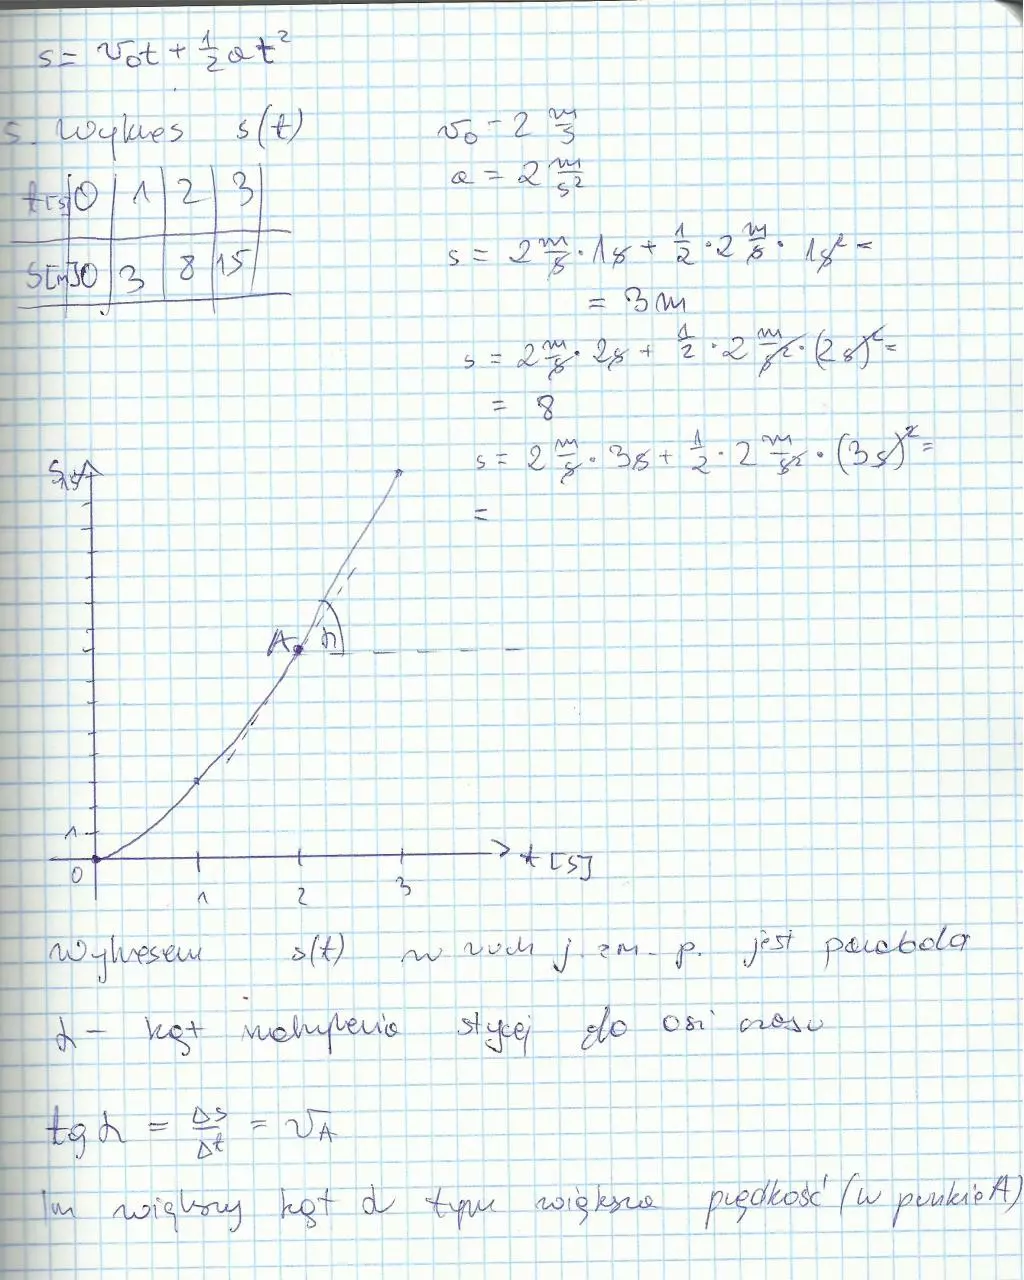 s = v₀t + ½at²
5. Wykres s(t)
v₀ = 2 m/s
a = 2 m/s²
t[s] 0 1 2 3
S[m] 0 3 8 15
s = 2 m/s · 1s + ½ · 2 m/s · 1s² =
= 3m
s = 2 m/s · 2s + ½ · 2 m/s² · (2s)² =
= 8
s = 2 m/s · 3s + ½ · 2 m/s² · (3s)² =
=
A α
1
0 1 2 3 t [s]
Wykresem s(t) w ruch j. zm. p. jest parabola
α – kąt nachylenia stycej do osi czasu
tg α = Δs/Δt = vA
Im większy kąt α tym większa prędkość (w punkcie A)